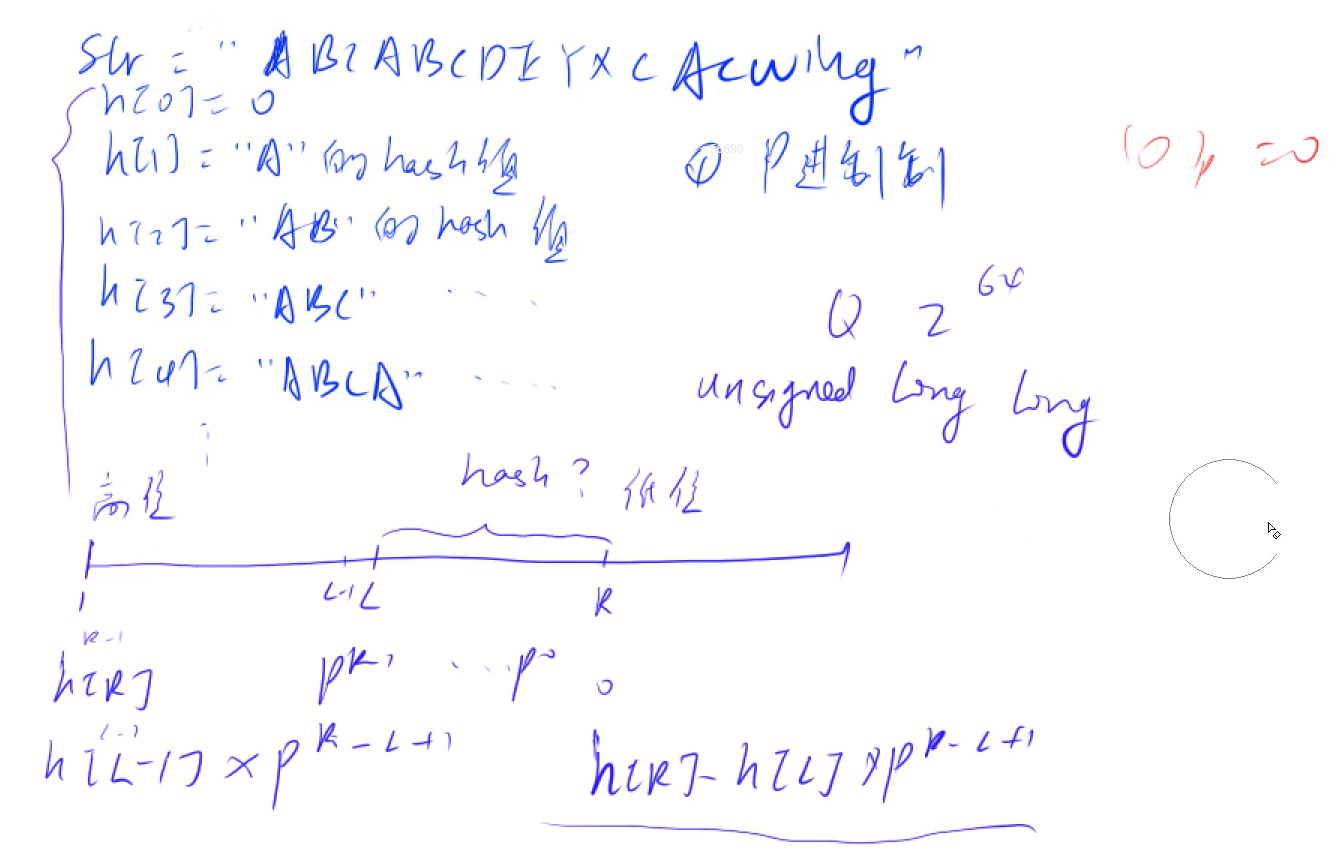 Str = "ABCABCDEYXCAcwing"
h[0] = 0
h[1] = "A" 的 hash 值
① P进制制
(0)p = 0
h[2] = "AB" 的 hash 值
h[3] = "ABC" ....
Q 2^64
h[4] = "ABCA" ....
unsigned long long
⋮
高位
hash?
低位
1 L-1 L R
R-1
h[R] p^R-1 ... p^0 0
L-1
h[L-1] × p^R-L+1
h[R] - h[L] × p^R-L+1